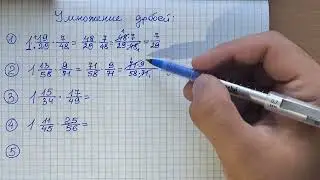 Умножение дробей:
① 1 19/29 · 7/48 = 48/29 · 7/48 = 48·7/29·48 = 7/29
② 1 13/58 · 9/71 = 71/58 · 9/71 = 71·9/58·71
③ 1 15/34 · 17/49 =
④ 1 11/45 · 25/56 =
⑤